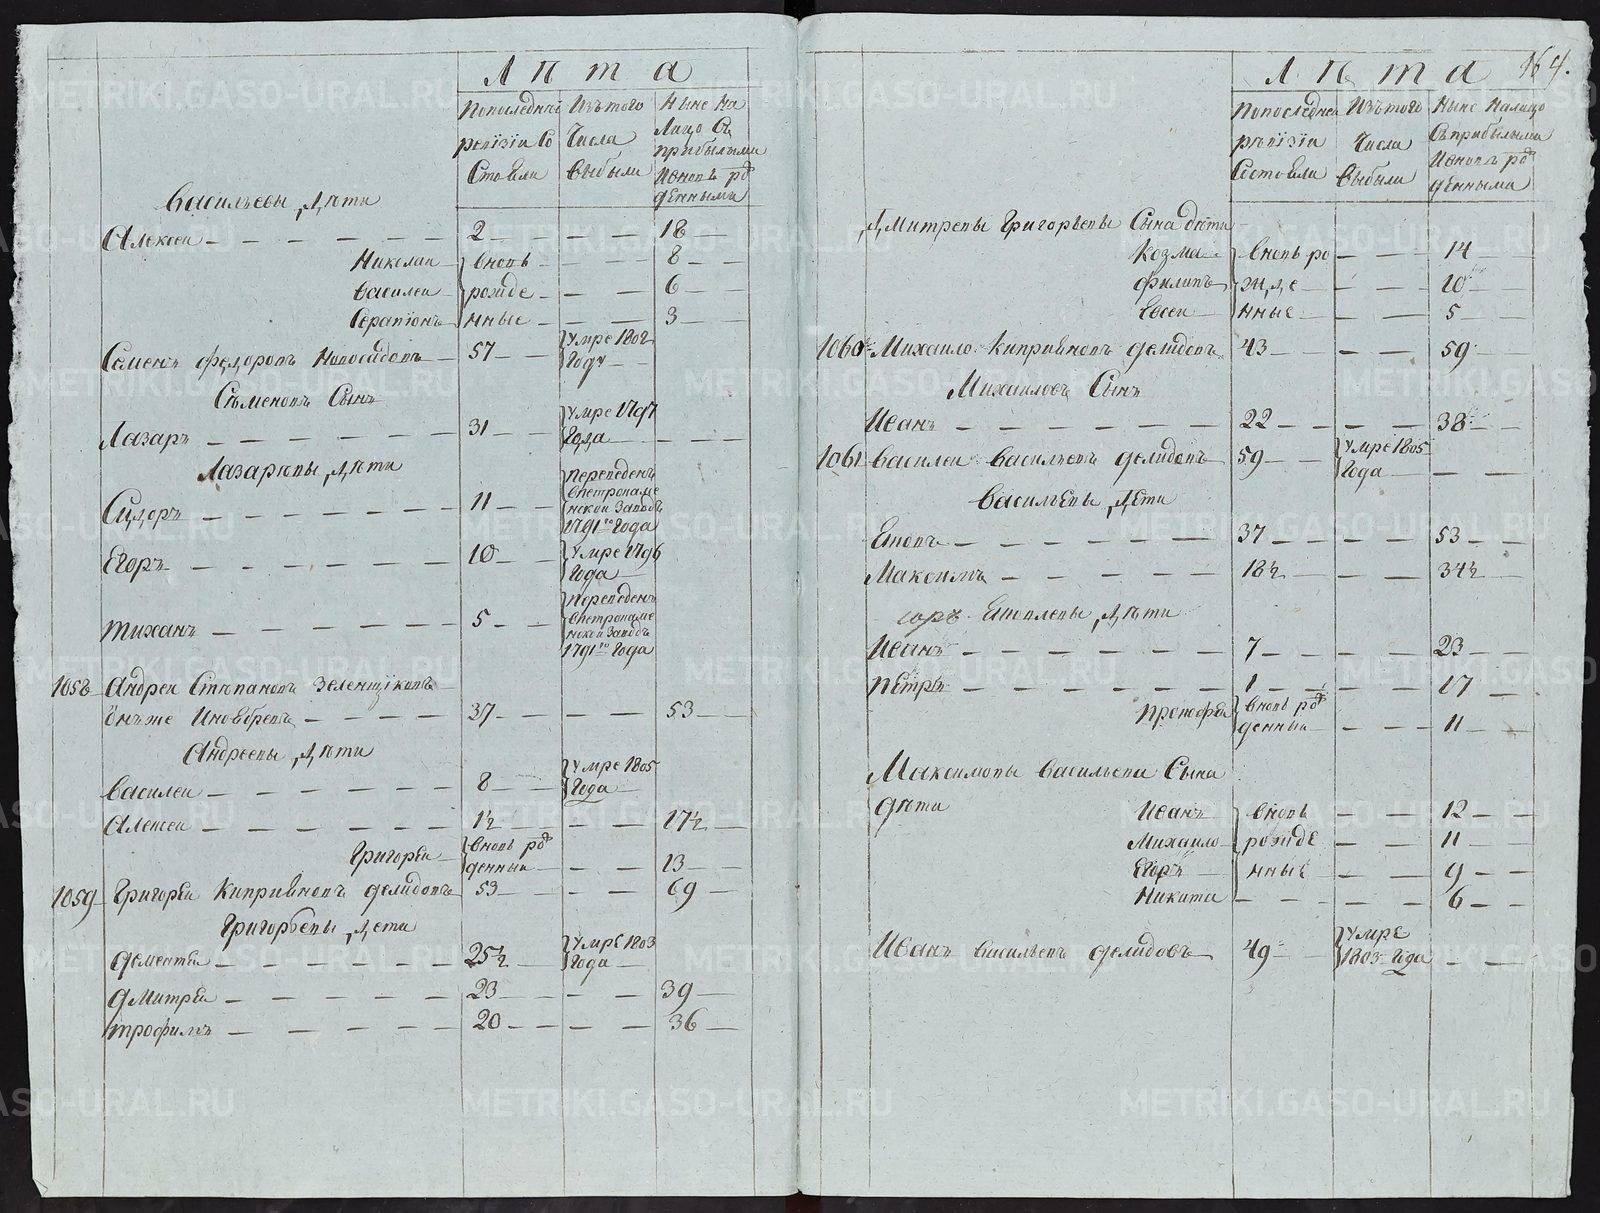 Лѣта
Попоследнеи Изътого Ныне на
ревїзїи со числа лицо съ
стояли выбыли прибылыми
ивновь рож
денными
Васильевы дѣти
Алексеи 2 18
Николаи вновь 8
Василеи рожде 6
Серапионъ нные 3
Семенъ Федоровъ Новосидовъ 57 умре 1802
году
Съменовъ Сынъ
Лазарь 31 умре 1797
года
Лазаревы дѣти
Сидоръ 11 переведенъ
впетрокаме
нской заводъ
1791го года
Егоръ 10 умре 1796
года
Тиханъ 5 переведенъ
впетрокаме
нской заводъ
1791го года
1058 Андреи Стѣпановъ Зеленщиковъ
онъже 37 53
Андреевы дѣти
Василеи 8 умре 1805
года
Алексеи 1½ 17½
Григореи вновь рож
денныи 13
1059 Григореи Киприяновъ Делидовъ 53 69
Григорьевы дети
Дементеи 25½ умре 1803
года
Дмитреи 23 39
Трофимъ 20 36
Лѣта 164.
Попоследнеи Изътого Ныне налицо
ревїзїи числа съприбылыми
состояли выбыли ивновь рож
денными
Дмитревы Григорьевы Сына дѣти
Козма вновь ро 14
Филипъ жде 10
Евсеи нные 5
1060 Михаило Киприяновъ Делидовъ 43 59
Михаиловъ Сынъ
Иванъ 22 38
1061 Василеи Васильевъ Делидовъ 59 умре 1805
года
Васильевы дети
Еновъ 37 53
Максимъ 18½ 34½
дѣти
Иванъ 7 23
Петръ 1 17
Прокофеи вновь рож
денныи 11
Максимовы Васильева Сына
дѣти Иванъ вновь 12
Михаило рожде 11
Егоръ нные 9
Никита 6
Иванъ Васильевъ Делидовъ 49 умре
1803 года
METRIKI.GASO-URAL.RU